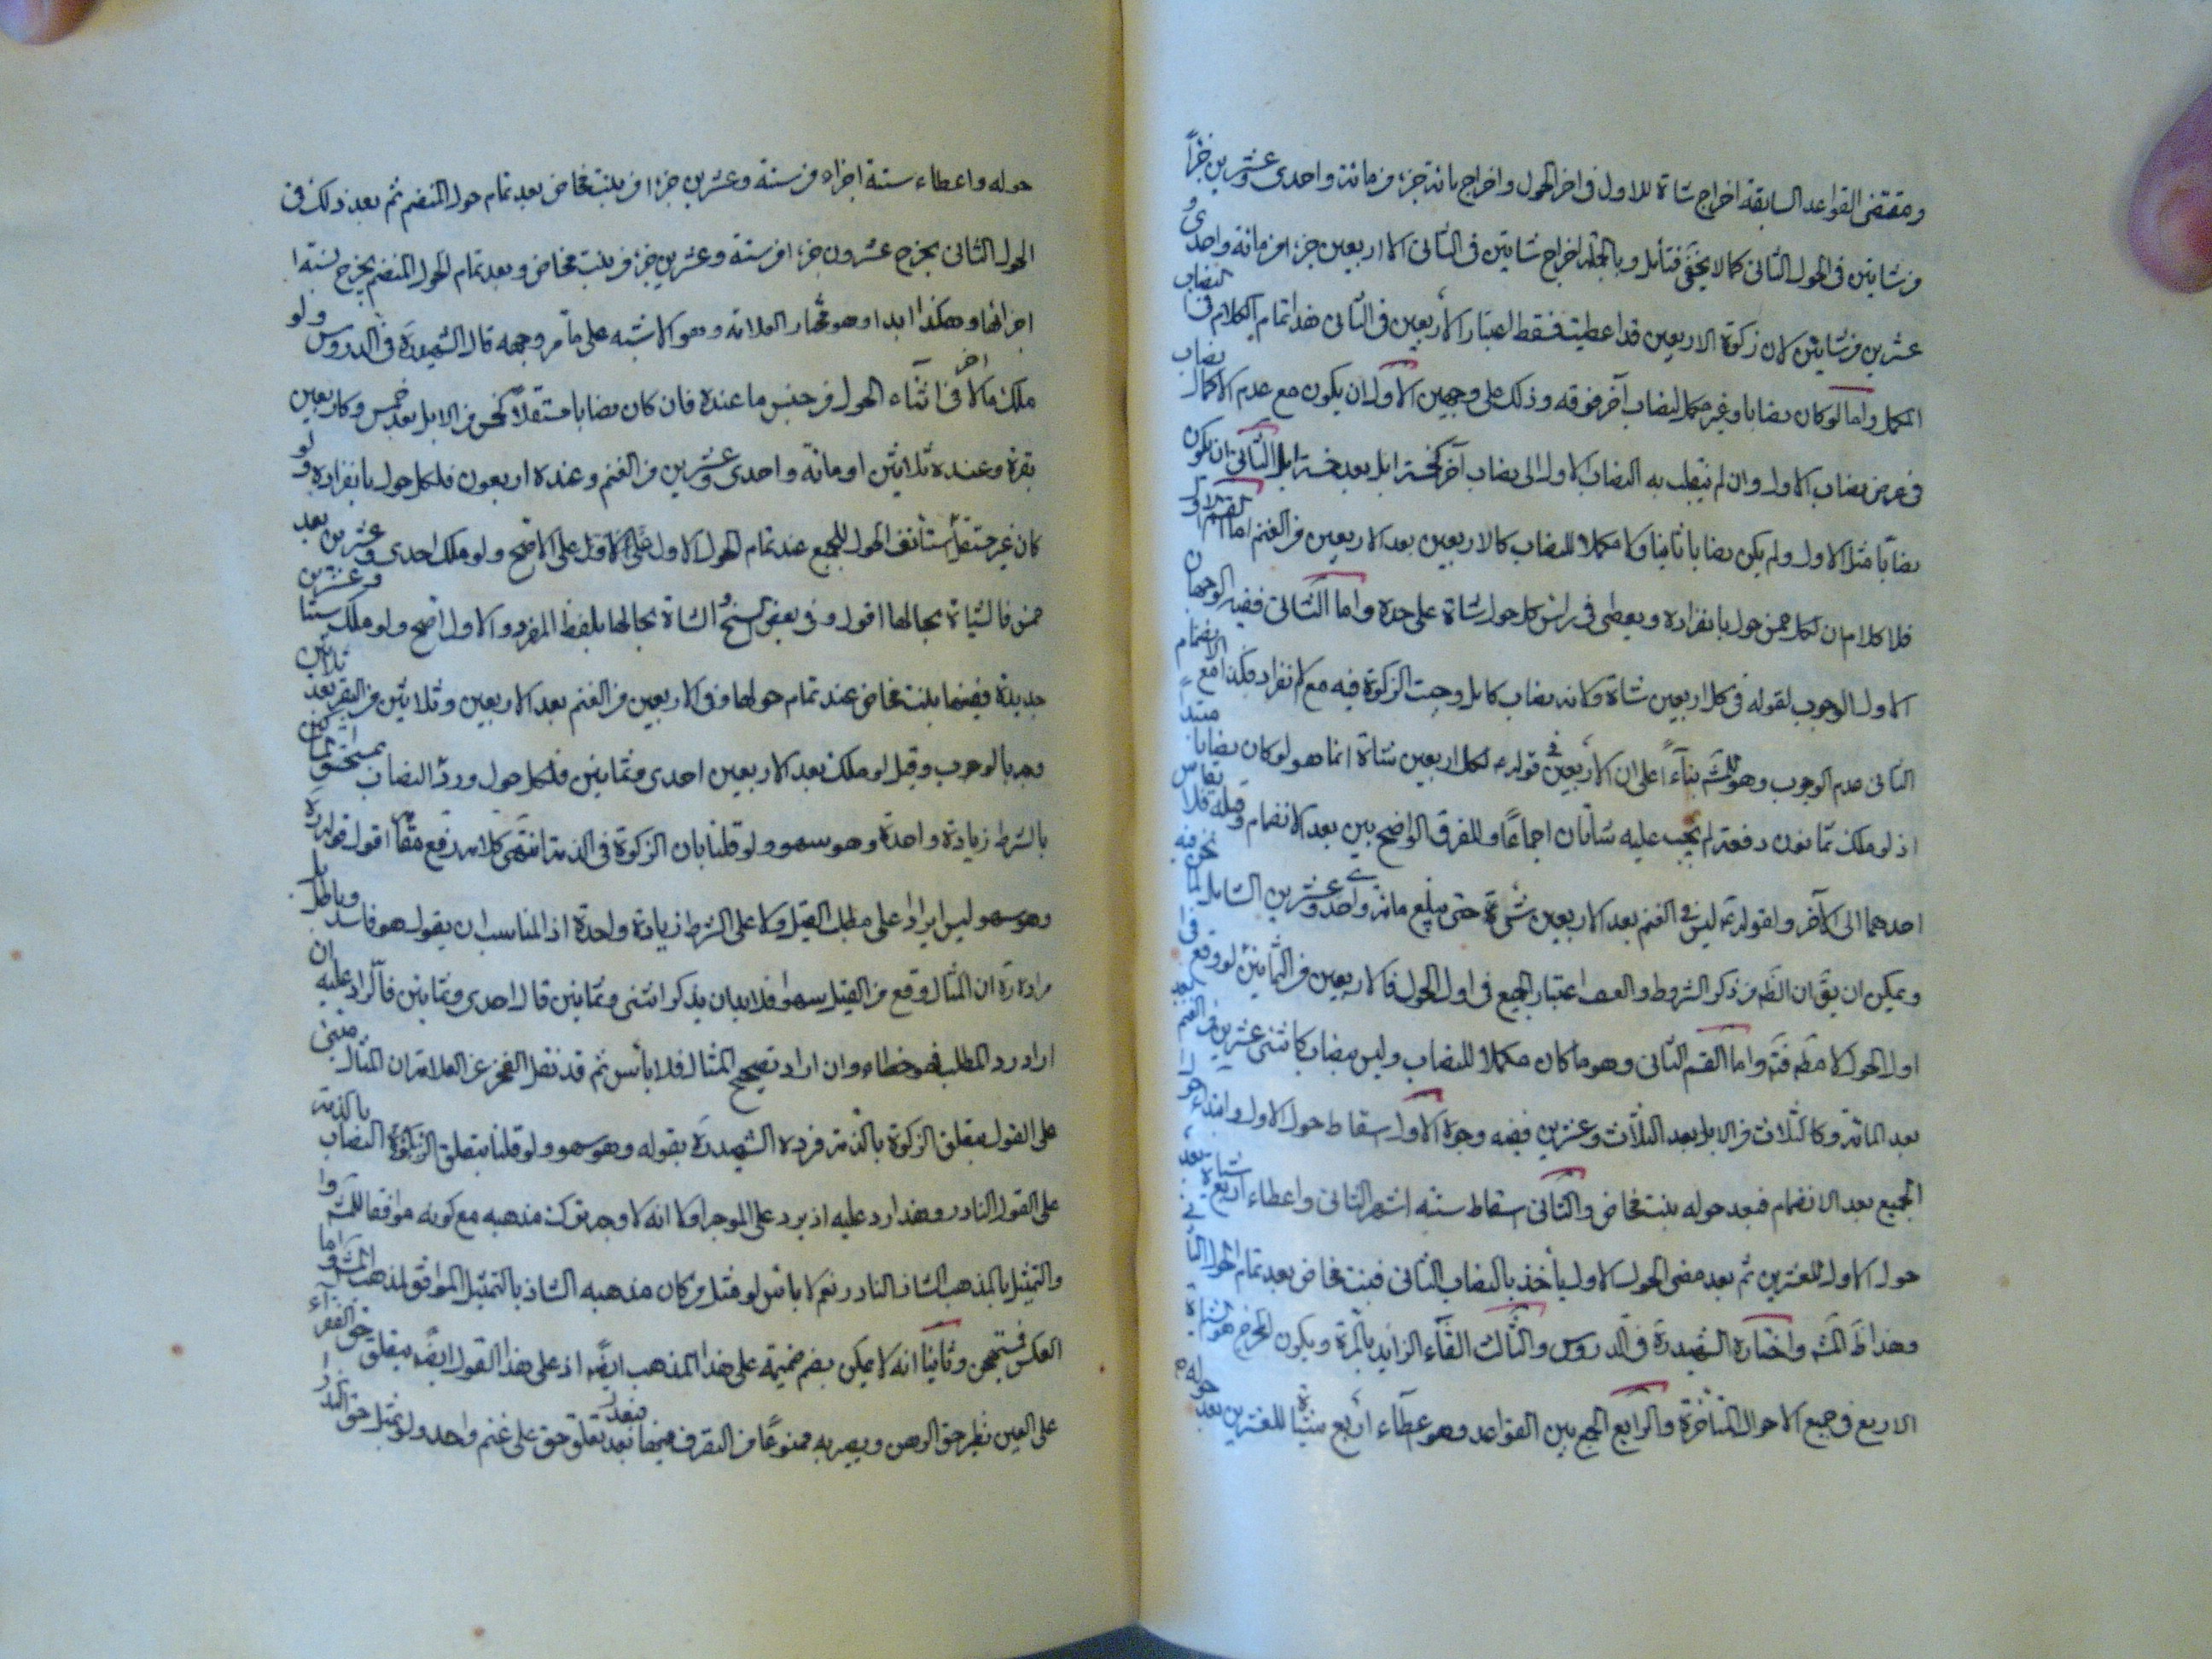 ومقتضى القواعد السابقة اخراج شاة للاول فى اخر الحول واخراج مائة جزء من مائة واحدى وعشرين جزأ
من شاتين فى الحول الثانى كما لا يخفى فتأمل وبالجملة اخراج شاتين فى الثانى الا اربعين جزء من مائة واحدى و
عشرين من شاتين لان زكوة الاربعين قد اعطيت فسقط اعتبار الاربعين فى الثانى هذا تمام الكلام فى النصاب
المكمل واما لو كان نصابا وغير مكمل لنصاب آخر فوقه وذلك على وجهين الاول ان يكون مع عدم الاكمال نصاب
فى عرض نصاب الاول وان لم ينقلب به النصاب الاول الى نصاب آخر كخمسة ابل بعد خمسة ابل الثانى ان يكون
نصابا مثل الاول ولم يكن نصابا ثانيا ولا مكملا للنصاب كالاربعين بعد الاربعين من الغنم اما القسم الاول
فلا كلام ان لكل خمس حول بانفراده ويعطى فى راس كل حول شاة على حدة واما الثانى ففيه الوجهان
الاول الوجوب لقوله فى كل اربعين شاة ولانه نصاب كامل وجبت الزكوة فيه مع الانفراد فكذا مع الانضمام
الثانى عدم الوجوب وهو للشم بناء على ان الاربعين فى قوله لكل اربعين شاة انما هو لو كان نصابا مبتدأ
اذ لو ملك ثمانون دفعة لم يجب عليه شاتان اجماعا وللفرق الواضح بين بعد الانضمام وقبله فلا يقاس
احدهما الى الآخر ولقوله ليس فى الغنم بعد الاربعين شىء حتى يبلغ مائة واحدى وعشرين الشامل لما نحن فيه
ويمكن ان يق ان الظ من ذكر الشروط والعدد اعتبار الجميع فى اول الحول فالاربعين من الثمانين لو وقع فى
اول الحول لا مطم فتم واما القسم الثانى وهو ما كان مكملا للنصاب وليس بنصاب كاثنى عشرين من الغنم بعد
بعد المائة وكالثلاث من الابل بعد الثلاث وعشرين ففيه وجوه الاول اسقاط حول الاول وابتداء حول
الجميع بعد الانضمام فبعد حوله بنت مخاض والثانى اسقاط ستة اشهر الثانى واعطاء اربع شياة بعد
حول الاول للعشرين ثم بعد مضى الحول الاول يأخذ بالنصاب الثانى فبنت مخاض بعد تمام الحول الثانى
وهذا ظ الشم واختاره الشهيد ره فى الدروس والثالث القاء الزايد بالمرة ويكون المخرج هو الشياة
الاربع فى جميع الاحوال المتأخرة والرابع الجمع بين القواعد وهو اعطاء اربع شياة للعشرين بعد حوله
حوله واعطاء ستة اجزاء من ستة وعشرين جزء من بنت مخاض بعد تمام حول المنضم ثم بعد ذلك فى
الحول الثانى يخرج عشرون جزء من ستة وعشرين جزء من بنت مخاض وبعد تمام الحول المنضم يخرج ستة
اجزائها وهكذا ابدا وهو مختار العلامة وهو الاشبه على ما مر وجهه قال الشهيد ره فى الدروس ولو
ملك مالا آخر فى اثناء الحول من جنس ما عنده فان كان نصابا مستقلا كخمس من الابل بعد خمس وكاربعين
بقرة وعنده ثلاثين او مائة واحدى وعشرين من الغنم وعنده اربعون فلكل حول بانفراده ولو
كان غير مستقل استأنف الحول للجميع عند تمام الحول الاول على الاصح ولو ملك احدى وعشرين بعد
خمس فالشياة بحالها اقول وفى بعض النسخ الشاة بحالها بلفظ المفرد والاول اصح ولو ملك ستا وعشرين
جديدة ففيها بنت مخاض عند تمام حولها وفى الاربعين من الغنم بعد الاربعين وثلاثين من البقر بعد ثلاثين
وجه بالوجوب وقيل لو ملك بعد الاربعين احدى وثمانين فلكل حول وردّ النصاب
بالشرط زيادة واحدة وهو سهو ولو قلنا بان الزكوة فى الذمة انتهى كلامه رفع مقامه اقول قوله ره
وهو سهو ليس ايرادا على مطلب القيل ولا على الشرط زيادة واحدة اذ المناسب ان يقول هو فاسد وباطل بل
مراده ره ان المثال وقع من القيل سهوا فلا بد ان يذكر اثنى وثمانين قال احدى وثمانين فالراد عليه ان
اراد رد المطلب فهو خطاء وان اراد تصحيح المثال فلا بأس ثم قد نقل الفخر عن العلامة ان المثال مبنى
على القول بتعلق الزكوة بالذمة فرده الشهيد ره بقوله وهو سهو ولو قلنا بتعلق الزكوة بالذمة
على القول النادر وهذا رد عليه اذ يرد على الموجه اولا انه لا وجه لترك مذهبه مع كونه موافقا للشم
والتمثيل بالمذهب الشاذ النادر نعم لا باس لو مثل من كان مذهبه الشاذ بالتمثيل الموافق لمذهب الشم واما
العكس فمستهجن وثانيا انه لا يمكن بضم ضميمة على هذا المذهب ايضا اذ على هذا القول ايضا يتعلق حق الفقراء
على العين نظير حق الرهن ويصير به ممنوعا من التصرف فيها فبعد تعلق حق على غنم واحد